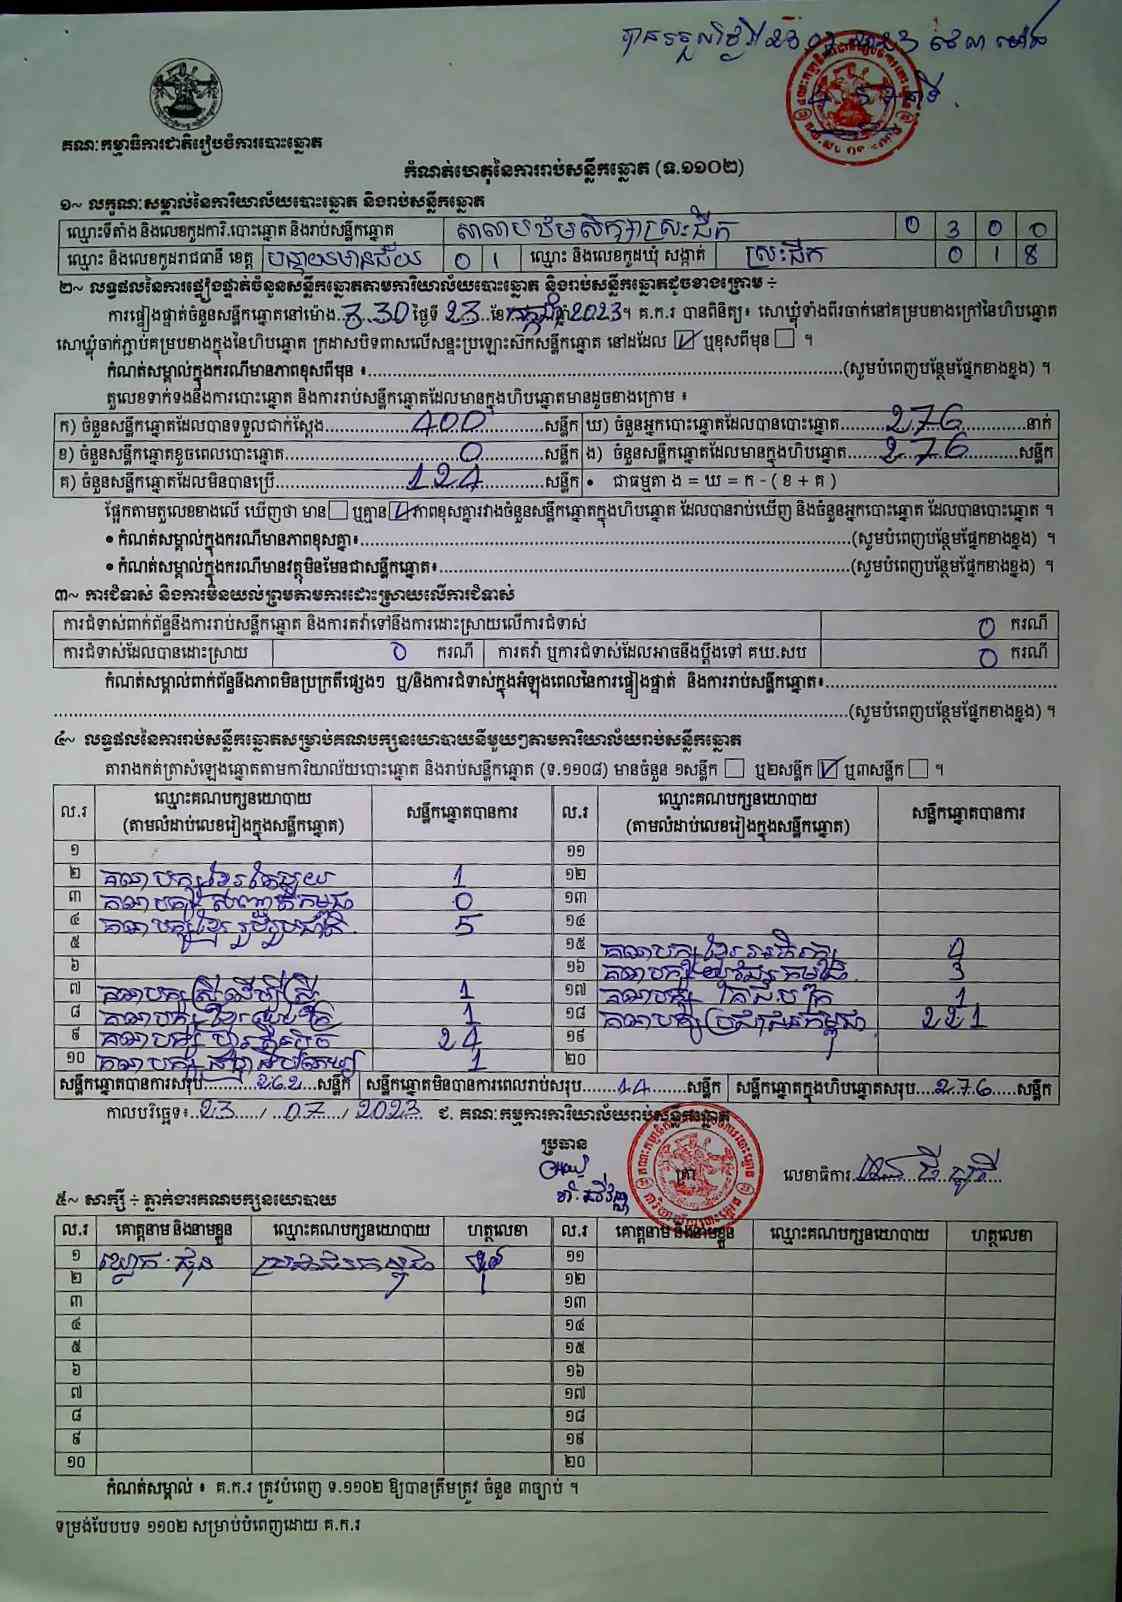 គណៈកម្មាធិការជាតិរៀបចំការបោះឆ្នោត
កំណត់ហេតុនៃការរាប់សន្លឹកឆ្នោត (ទ.១១០២)
១~ លក្ខណៈសម្គាល់នៃការិយាល័យបោះឆ្នោត និងរាប់សន្លឹកឆ្នោត
ឈ្មោះទីតាំង និងលេខកូដការិ.បោះឆ្នោត និងរាប់សន្លឹកឆ្នោត សាលាបឋមសិក្សាស្រះជីក 0 3 0 0
ឈ្មោះ និងលេខកូដរាជធានី ខេត្ត បន្ទាយមានជ័យ 0 1 ឈ្មោះ និងលេខកូដឃុំ សង្កាត់ ស្រះជីក 0 1 8
២~ លទ្ធផលនៃការផ្ទៀងផ្ទាត់ចំនួនសន្លឹកឆ្នោតតាមការិយាល័យបោះឆ្នោត និងរាប់សន្លឹកឆ្នោតដូចខាងក្រោម ÷
ការផ្ទៀងផ្ទាត់ចំនួនសន្លឹកឆ្នោតនៅម៉ោង 3.30 ថ្ងៃទី 23 ខែកក្កដា ឆ្នាំ 2023។ គ.ក.រ បានពិនិត្យ៖ សោឃ្លុំទាំងពីរចាក់នៅគម្របខាងក្រៅនៃហិបឆ្នោត
សោឃ្លុំចាក់ភ្ជាប់គម្របខាងក្នុងនៃហិបឆ្នោត ក្រដាសបិទពាសលើសន្ទះប្រឡោះសឹកសន្លឹកឆ្នោត នៅដដែល ☑ ឬខុសពីមុន ☐ ។
កំណត់សម្គាល់ក្នុងករណីមានភាពខុសពីមុន ៖ (សូមបំពេញបន្ថែមផ្នែកខាងខ្នង) ។
តួលេខទាក់ទងនឹងការបោះឆ្នោត និងការរាប់សន្លឹកឆ្នោតដែលមានក្នុងហិបឆ្នោតមានដូចខាងក្រោម ៖
ក) ចំនួនសន្លឹកឆ្នោតដែលបានទទួលជាក់ស្តែង 400 សន្លឹក ឃ) ចំនួនអ្នកបោះឆ្នោតដែលបានបោះឆ្នោត 276 នាក់
ខ) ចំនួនសន្លឹកឆ្នោតខូចពេលបោះឆ្នោត 0 សន្លឹក ង) ចំនួនសន្លឹកឆ្នោតដែលមានក្នុងហិបឆ្នោត 276 សន្លឹក
គ) ចំនួនសន្លឹកឆ្នោតដែលមិនបានប្រើ 124 សន្លឹក • ជាធម្មតា ង = ឃ = ក - ( ខ + គ )
ផ្អែកតាមតួលេខខាងលើ ឃើញថា មាន ☐ ឬគ្មាន ☑ ភាពខុសគ្នារវាងចំនួនសន្លឹកឆ្នោតក្នុងហិបឆ្នោត ដែលបានរាប់ឃើញ និងចំនួនអ្នកបោះឆ្នោត ដែលបានបោះឆ្នោត ។
• កំណត់សម្គាល់ក្នុងករណីមានភាពខុសគ្នា៖ (សូមបំពេញបន្ថែមផ្នែកខាងខ្នង) ។
• កំណត់សម្គាល់ក្នុងករណីមានវត្ថុមិនមែនជាសន្លឹកឆ្នោត៖ (សូមបំពេញបន្ថែមផ្នែកខាងខ្នង) ។
៣~ ការជំទាស់ និងការមិនយល់ព្រមតាមការដោះស្រាយលើការជំទាស់
ការជំទាស់ពាក់ព័ន្ធនឹងការរាប់សន្លឹកឆ្នោត និងការតវ៉ាទៅនឹងការដោះស្រាយលើការជំទាស់ 0 ករណី
ការជំទាស់ដែលបានដោះស្រាយ 0 ករណី ការតវ៉ា ឬការជំទាស់ដែលអាចនឹងប្តឹងទៅ គឃ.សប 0 ករណី
កំណត់សម្គាល់ពាក់ព័ន្ធនឹងភាពមិនប្រក្រតីផ្សេងៗ ឬ/និងការជំទាស់ក្នុងអំឡុងពេលនៃការផ្ទៀងផ្ទាត់ និងការរាប់សន្លឹកឆ្នោត៖
(សូមបំពេញបន្ថែមផ្នែកខាងខ្នង) ។
៤~ លទ្ធផលនៃការរាប់សន្លឹកឆ្នោតសម្រាប់គណបក្សនយោបាយនីមួយៗតាមការិយាល័យរាប់សន្លឹកឆ្នោត
តារាងកត់ត្រាសំឡេងឆ្នោតតាមការិយាល័យបោះឆ្នោត និងរាប់សន្លឹកឆ្នោត (ទ.១១០៨) មានចំនួន ១សន្លឹក ☐ ឬ២សន្លឹក ☑ ឬ៣សន្លឹក ☐ ។
ល.រ ឈ្មោះគណបក្សនយោបាយ (តាមលំដាប់លេខរៀងក្នុងសន្លឹកឆ្នោត) សន្លឹកឆ្នោតបានការ ល.រ ឈ្មោះគណបក្សនយោបាយ (តាមលំដាប់លេខរៀងក្នុងសន្លឹកឆ្នោត) សន្លឹកឆ្នោតបានការ
១ ១១
២ គណបក្សខ្មែរតែមួយ 1 ១២
៣ គណបក្ស សញ្ជាតិកម្ពុជា 0 ១៣
៤ គណបក្សខ្មែររួបរួមជាតិ 5 ១៤
៥ ១៥ គណបក្សខ្មែរអភិរក្ស
៦ ១៦ គណបក្ស 3
៧ គណបក្សស្រីដើម្បីស្រី 1 ១៧ គណបក្ស 1
៨ គណបក្សខ្មែរ 1 ១៨ គណបក្សប្រជាជនកម្ពុជា 221
៩ គណបក្សហ៊្វុនស៊ិនប៉ិច 24 ១៩
១០ គណបក្ស 1 ២០
សន្លឹកឆ្នោតបានការសរុប 262 សន្លឹក សន្លឹកឆ្នោតមិនបានការពេលរាប់សរុប 14 សន្លឹក សន្លឹកឆ្នោតក្នុងហិបឆ្នោតសរុប 276 សន្លឹក
កាលបរិច្ឆេទ៖ 23 / 07 / 2023 ជ. គណៈកម្មការការិយាល័យរាប់សន្លឹកឆ្នោត
ប្រធាន
ត្រា
លេខាធិការ
៥~ សាក្សី ÷ ភ្នាក់ងារគណបក្សនយោបាយ
ល.រ គោត្តនាម និងនាមខ្លួន ឈ្មោះគណបក្សនយោបាយ ហត្ថលេខា ល.រ គោត្តនាម និងនាមខ្លួន ឈ្មោះគណបក្សនយោបាយ ហត្ថលេខា
១ ប្រជាជនកម្ពុជា ១១
២ ១២
៣ ១៣
៤ ១៤
៥ ១៥
៦ ១៦
៧ ១៧
៨ ១៨
៩ ១៩
១០ ២០
កំណត់សម្គាល់ ៖ គ.ក.រ ត្រូវបំពេញ ទ.១១០២ ឱ្យបានត្រឹមត្រូវ ចំនួន ៣ច្បាប់ ។
ទម្រង់បែបបទ ១១០២ សម្រាប់បំពេញដោយ គ.ក.រ